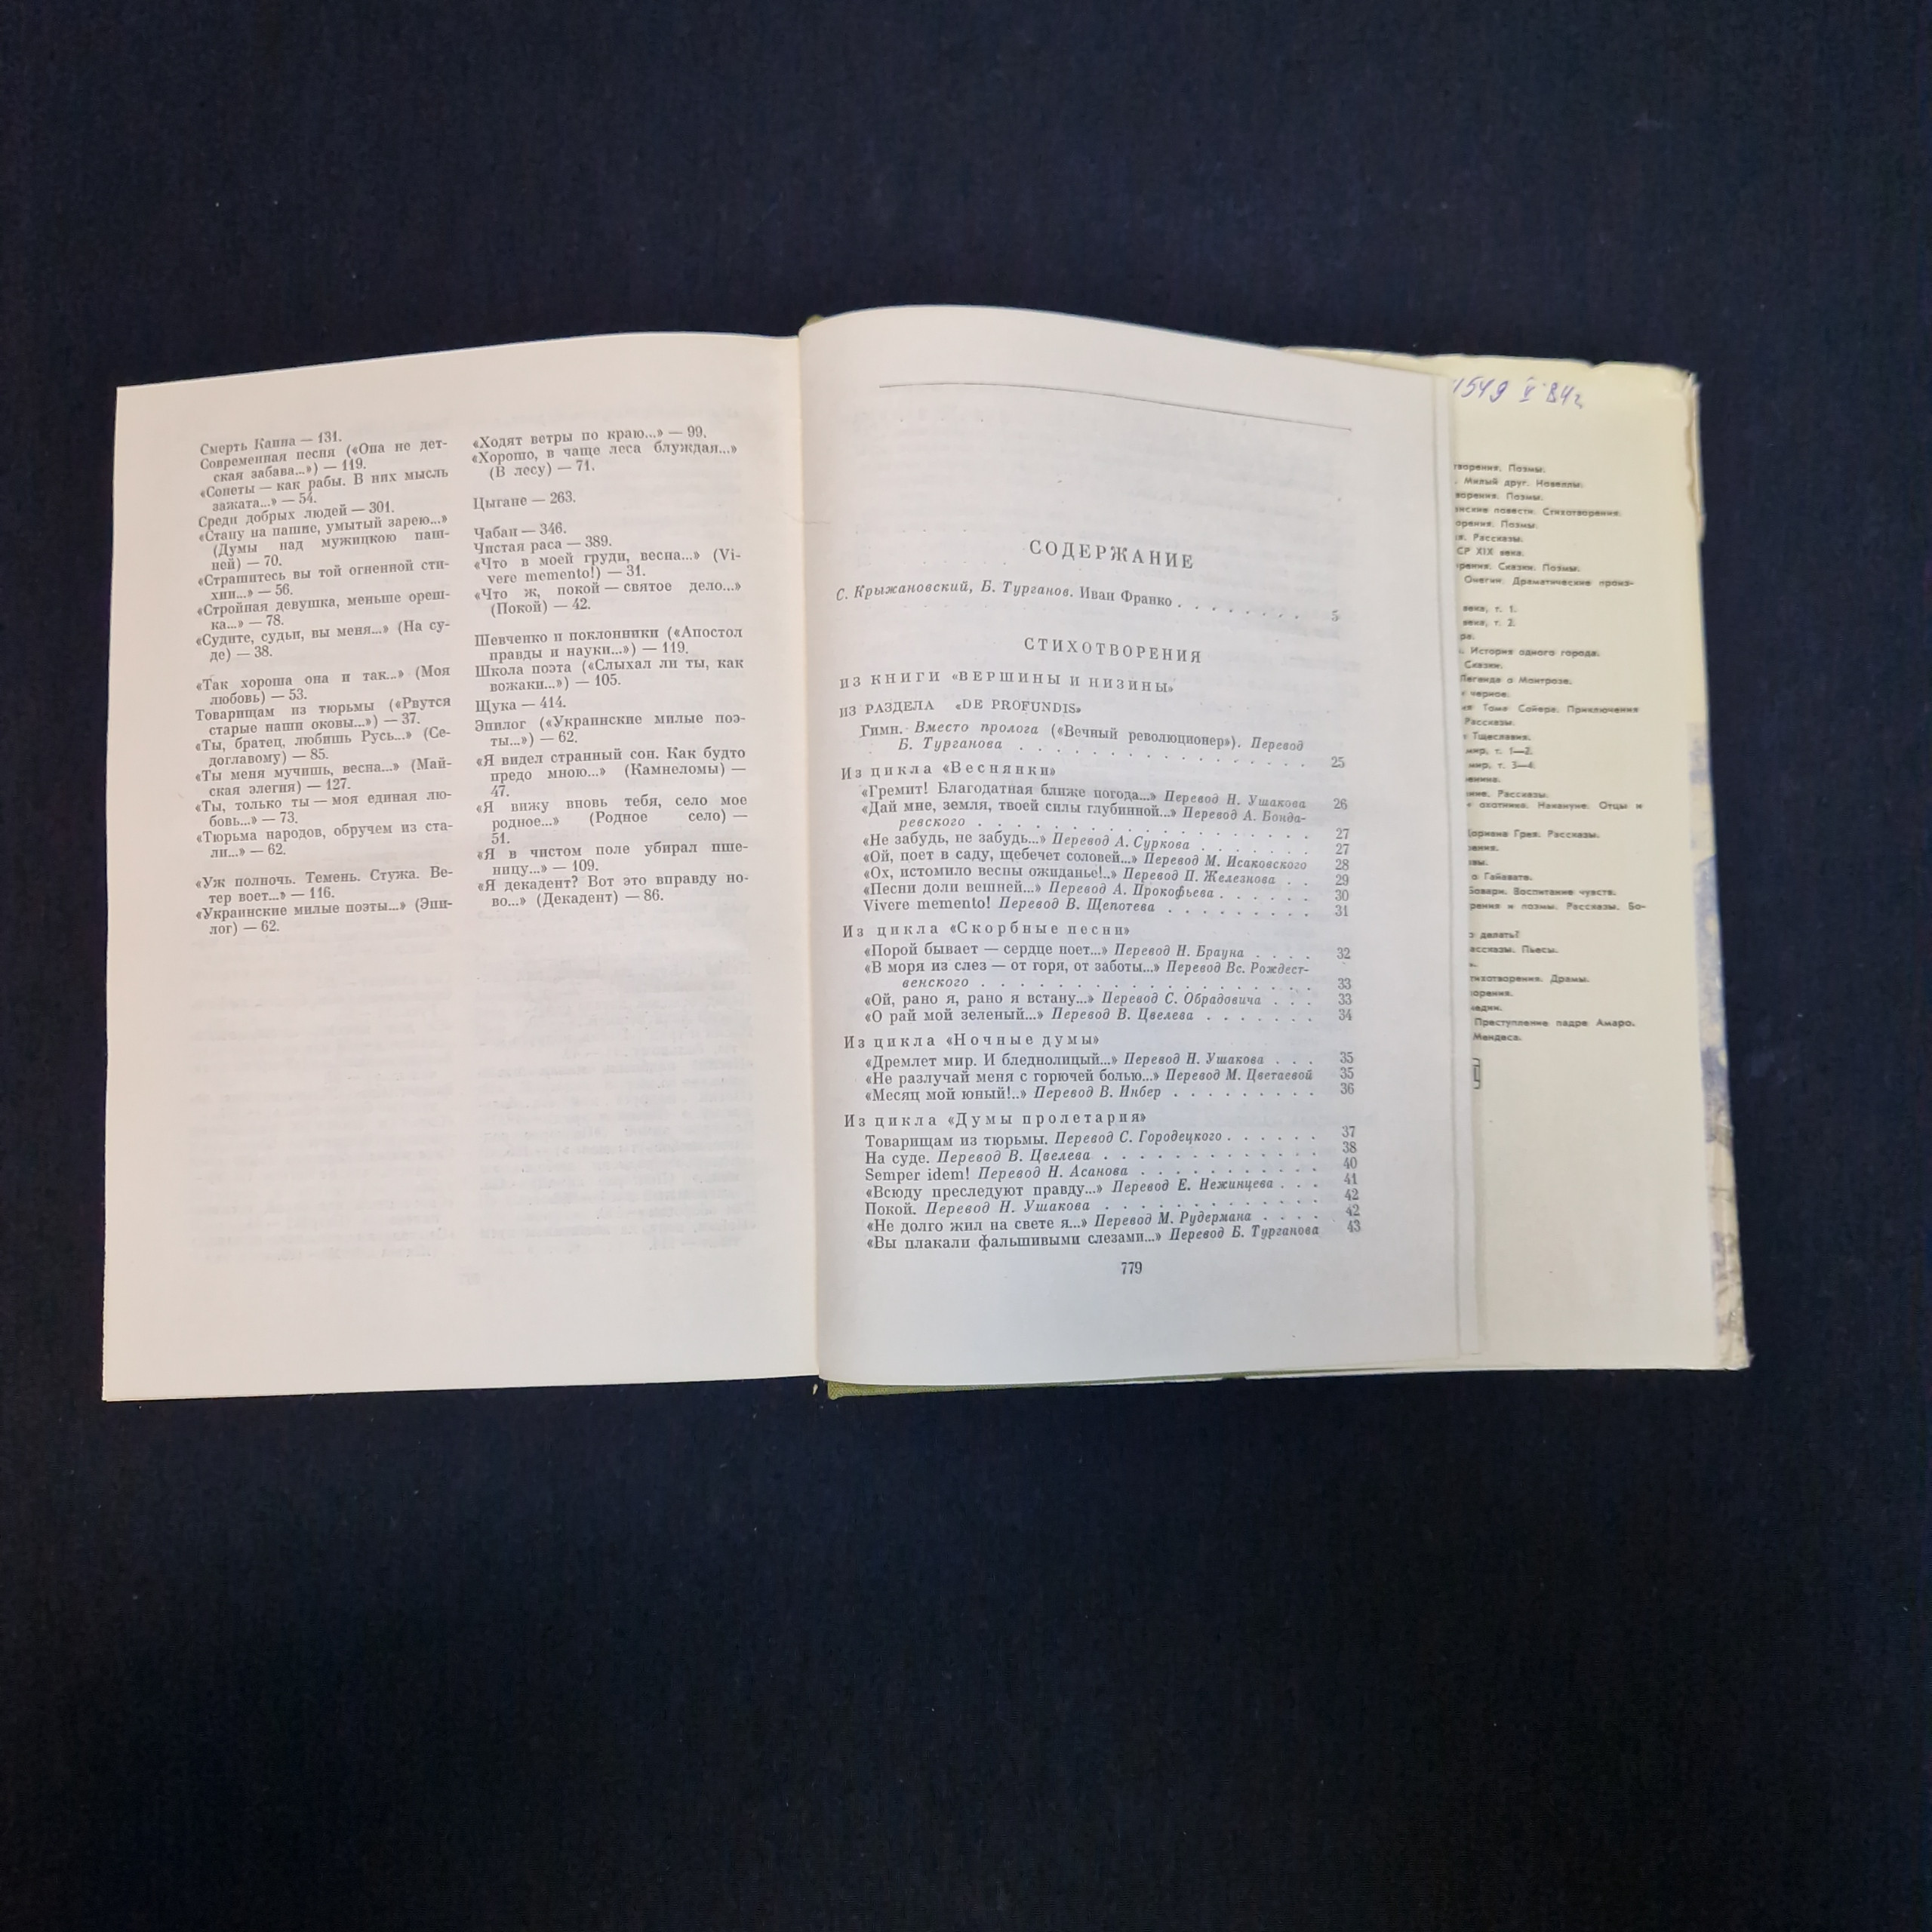 Смерть Каина — 131.
Современная песня («Она не дет-
ская забава...») — 119.
«Сонеты — как рабы. В них мысль
зажата...» — 54.
Среди добрых людей — 301.
«Стану на пашне, умытый зарею...»
(Думы над мужицкою паш-
ней) — 70.
«Страшитесь вы той огненной сти-
хии...» — 56.
«Стройная девушка, меньше ореш-
ка...» — 78.
«Судите, судьи, вы меня...» (На су-
де) — 38.
«Так хороша она и так...» (Моя
любовь) — 53.
Товарищам из тюрьмы («Рвутся
старые наши оковы...») — 37.
«Ты, братец, любишь Русь...» (Се-
доглавому) — 85.
«Ты меня мучишь, весна...» (Май-
ская элегия) — 127.
«Ты, только ты — моя единая лю-
бовь...» — 73.
«Тюрьма народов, обручем из ста-
ли...» — 62.
«Уж полночь. Темень. Стужа. Ве-
тер воет...» — 116.
«Украинские милые поэты...» (Эпи-
лог) — 62.
«Ходят ветры по краю...» — 99.
«Хорошо, в чаще леса блуждая...»
(В лесу) — 71.
Цыгане — 263.
Чабан — 346.
Чистая раса — 389.
«Что в моей груди, весна...» (Vi-
vere memento!) — 31.
«Что ж, покой — святое дело...»
(Покой) — 42.
Шевченко и поклонники («Апостол
правды и науки...») — 119.
Школа поэта («Слыхал ли ты, как
вожаки...») — 105.
Щука — 414.
Эпилог («Украинские милые поэ-
ты...») — 62.
«Я видел странный сон. Как будто
предо мною...» (Камнеломы) —
47.
«Я вижу вновь тебя, село мое
родное...» (Родное село) —
51.
«Я в чистом поле убирал пше-
ницу...» — 109.
«Я декадент? Вот это вправду но-
во...» (Декадент) — 86.
СОДЕРЖАНИЕ
С. Крыжановский, Б. Турганов. Иван Франко . . . . . . . . 5
СТИХОТВОРЕНИЯ
ИЗ КНИГИ «ВЕРШИНЫ И НИЗИНЫ»
ИЗ РАЗДЕЛА «DE PROFUNDIS»
Гимн. Вместо пролога («Вечный революционер»). Перевод
Б. Турганова . . . . . . . . . . . . . . . . 25
Из цикла «Веснянки»
«Гремит! Благодатная ближе погода...» Перевод Н. Ушакова 26
«Дай мне, земля, твоей силы глубинной...» Перевод А. Бонда-
ревского . . . . . . . . . . . . . . . . . . 27
«Не забудь, не забудь...» Перевод А. Суркова . . . . . . . 27
«Ой, поет в саду, щебечет соловей...» Перевод М. Исаковского 28
«Ох, истомило весны ожиданье!..» Перевод П. Железнова . . 29
«Песни доли вешней...» Перевод А. Прокофьева . . . . . . 30
Vivere memento! Перевод В. Щепотева . . . . . . . . . 31
Из цикла «Скорбные песни»
«Порой бывает — сердце ноет...» Перевод Н. Брауна . . . . 32
«В моря из слез — от горя, от заботы...» Перевод Вс. Рождест-
венского . . . . . . . . . . . . . . . . . . 33
«Ой, рано я, рано я встану...» Перевод С. Обрадовича . . . 33
«О рай мой зеленый...» Перевод В. Цвелева . . . . . . . 34
Из цикла «Ночные думы»
«Дремлет мир. И бледнолицый...» Перевод Н. Ушакова . . . 35
«Не разлучай меня с горючей болью...» Перевод М. Цветаевой 35
«Месяц мой юный!..» Перевод В. Инбер . . . . . . . . . 36
Из цикла «Думы пролетария»
Товарищам из тюрьмы. Перевод С. Городецкого . . . . . . 37
На суде. Перевод В. Цвелева . . . . . . . . . . . . . 38
Semper idem! Перевод Н. Асанова . . . . . . . . . . . 40
«Всюду преследуют правду...» Перевод Е. Нежинцева . . . 41
Покой. Перевод Н. Ушакова . . . . . . . . . . . . . 42
«Не долго жил на свете я...» Перевод М. Рудермана . . . . 42
«Вы плакали фальшивыми слезами...» Перевод Б. Турганова 43
779
1549 V 84г
Поэмы.
Милый друг. Новеллы.
Поэмы.
повести. Стихотворения.
Поэмы.
Рассказы.
СР XIX века.
Сказки. Поэмы.
Онегин. Драматические произ-
века, т. 1.
века, т. 2.
История одного города.
Сказки.
Легенда о Монтрозе.
черное.
Тома Сойера. Приключения
Рассказы.
Тщеславия.
мир, т. 1—2.
мир, т. 3—4.
Рассказы.
охотника. Накануне. Отцы и
Дориана Грея. Рассказы.
о Гайавате.
Бовари. Воспитание чувств.
и поэмы. Рассказы. Бо-
делать?
Пьесы.
Драмы.
Преступление падре Амаро.
Мендеса.